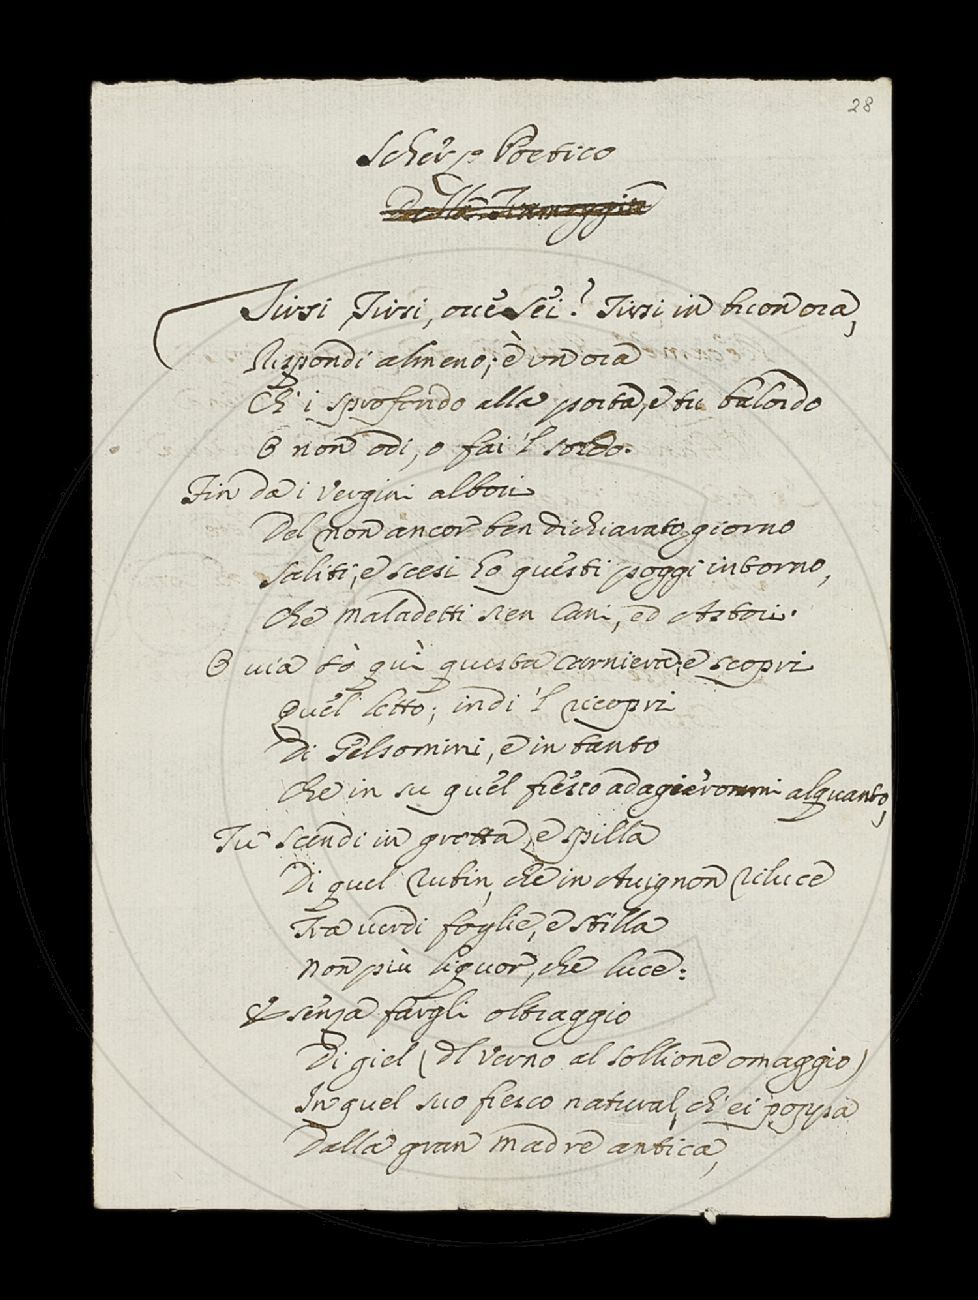 28
Scherzo Poetico
Tirsi Tirsi, ove sei? Tirsi in buon ora,
Rispondi almeno; è un ora
Ch' i sprofondo alla porta, e tu balordo
O non odi, o fai 'l sordo.
Fin da i vergini albori
Del non ancor ben dichiarato giorno
Saliti, e scesi ho questi poggi intorno,
Che maladetti sien Cani, ed Astori.
O via tò quì questa carniera; e scopri
Quel letto; indi 'l ricopri
Di Gelsomini, e in tanto
Che in su quel fresco adagierommi alquanto,
Tu scendi in grotta, e spilla
Di quel Rubin, che in Avignon riluce
Tra verdi foglie, e stilla
Non più liquor, che luce:
E senza fargli oltraggio
Di giel (del Verno al sollione omaggio)
In quel suo fresco natural, ch' ei poppa
Dalla gran Madre antica,